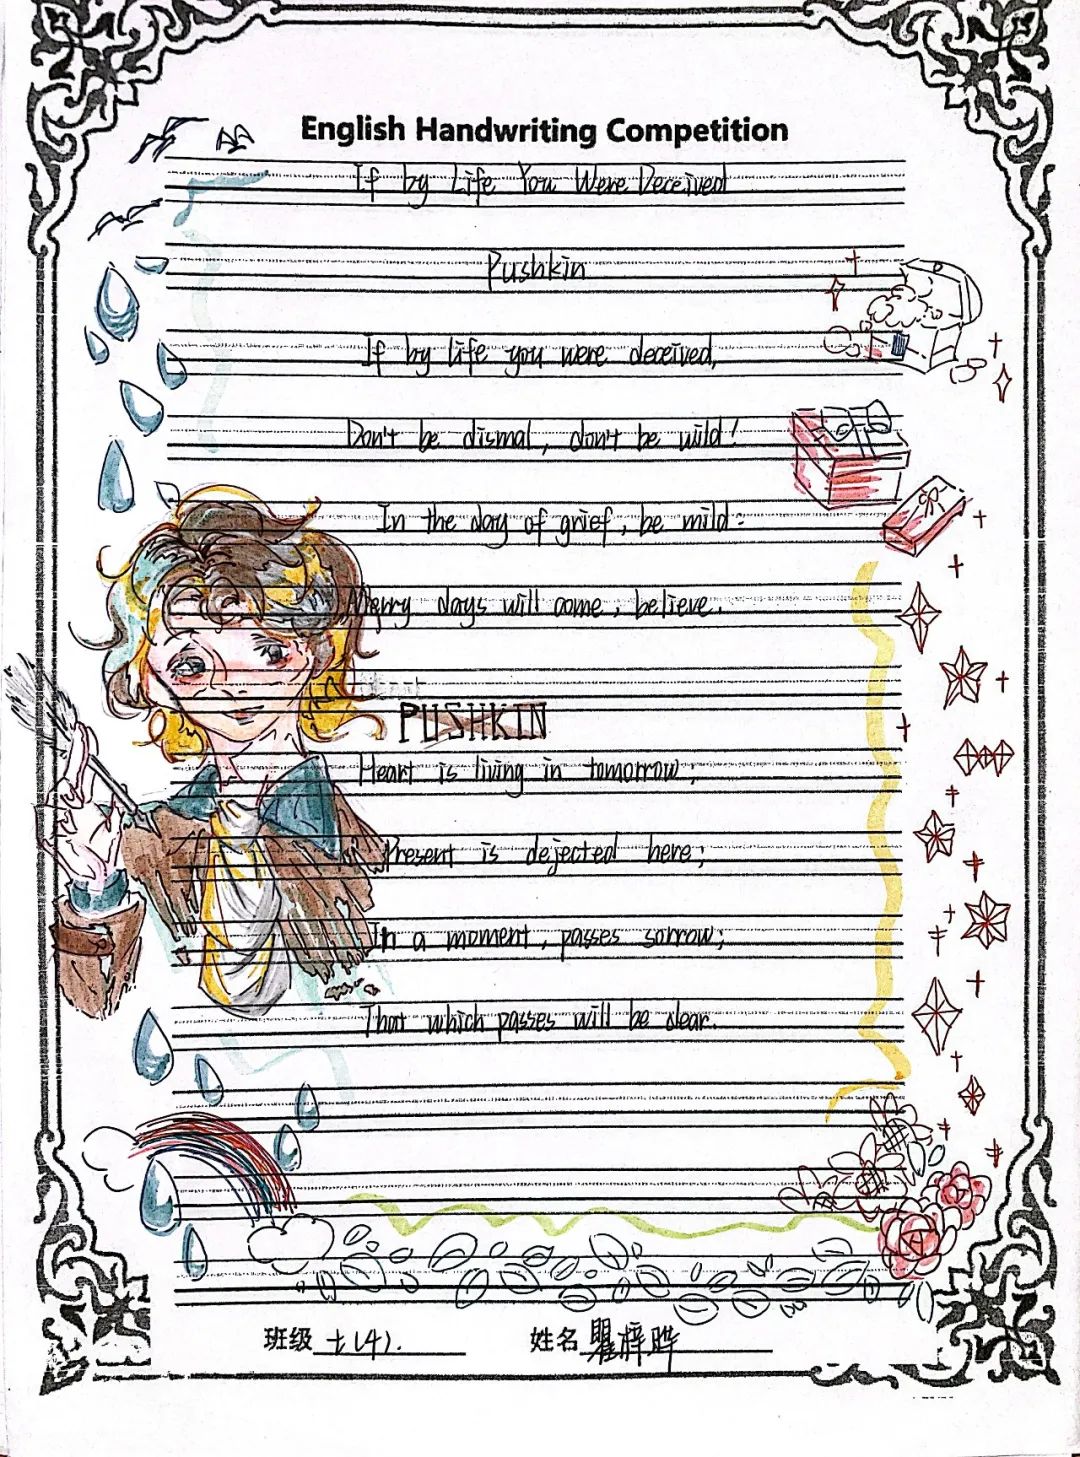 English Handwriting Competition
If by Life You Were Deceived
Pushkin
If by life you were deceived,
Don't be dismal, don't be wild!
In the day of grief, be mild:
Merry days will come, believe.
PUSHKIN
Heart is living in tomorrow;
Present is dejected here;
In a moment, passes sorrow;
That which passes will be dear.
班级 七(4). 姓名 瞿梓晔